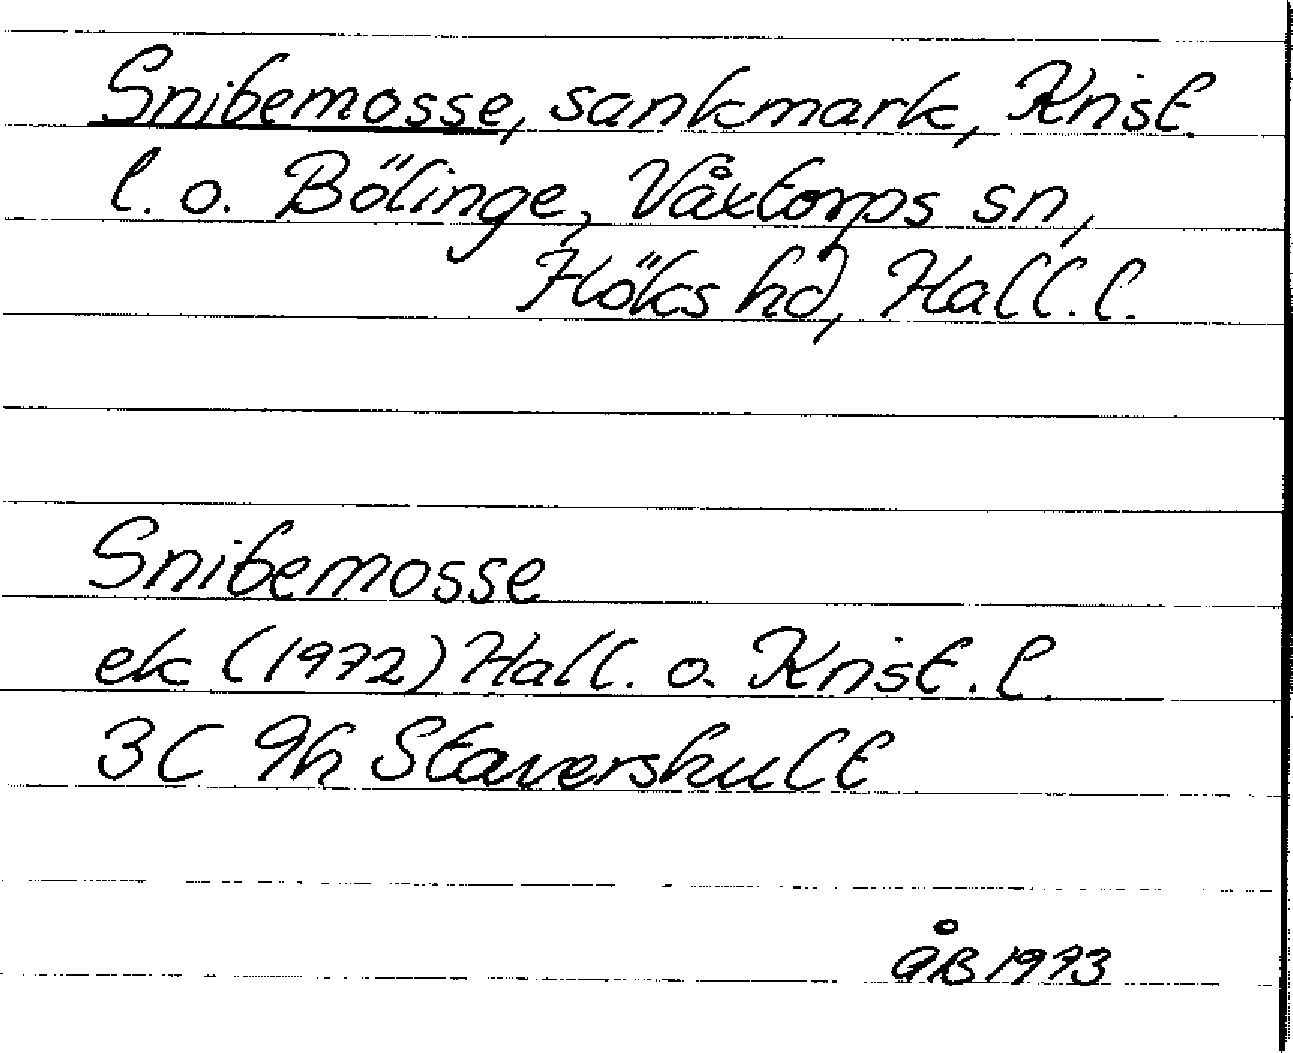 Snibemosse, sankmark, Krist.
l. o. Bölinge, Våxtorps sn,
Höks hd, Hall. l.
Snibemosse
ek (1972) Hall. o. Krist. l.
3C 9h Stavershult
ÅB 1973